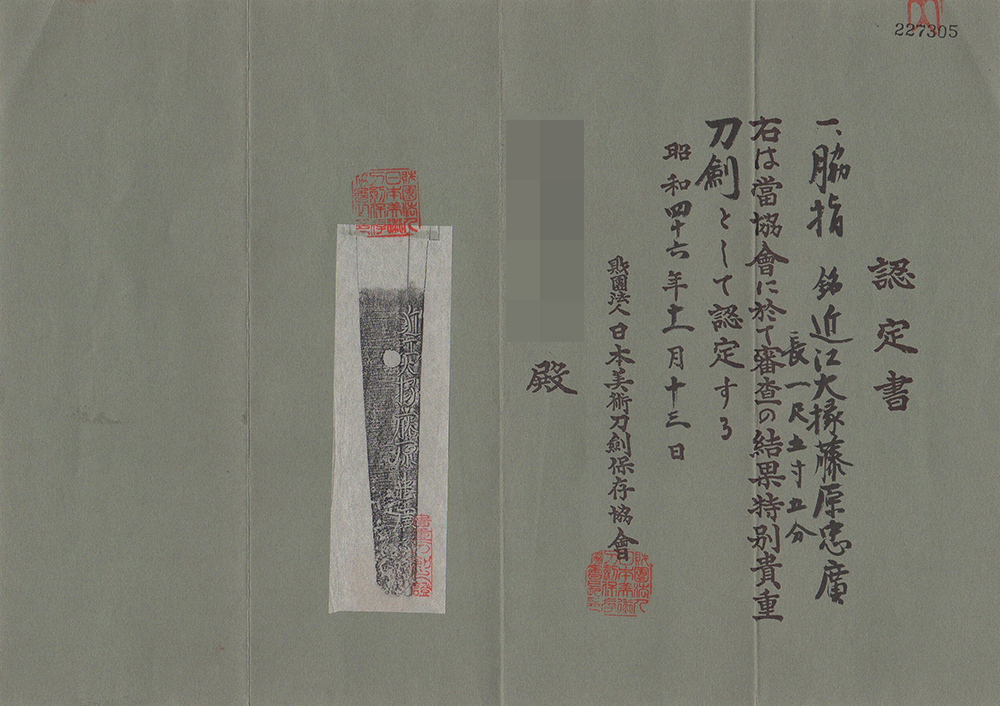 227305
認定書
一、脇指 銘 近江大掾藤原忠廣
長一尺 寸五分
右は當協會に於て審査の結果特別貴重
刀劍として認定する
昭和四十六年十一月十三日
財團法人日本美術刀劍保存協會
殿
近江大掾藤原忠廣